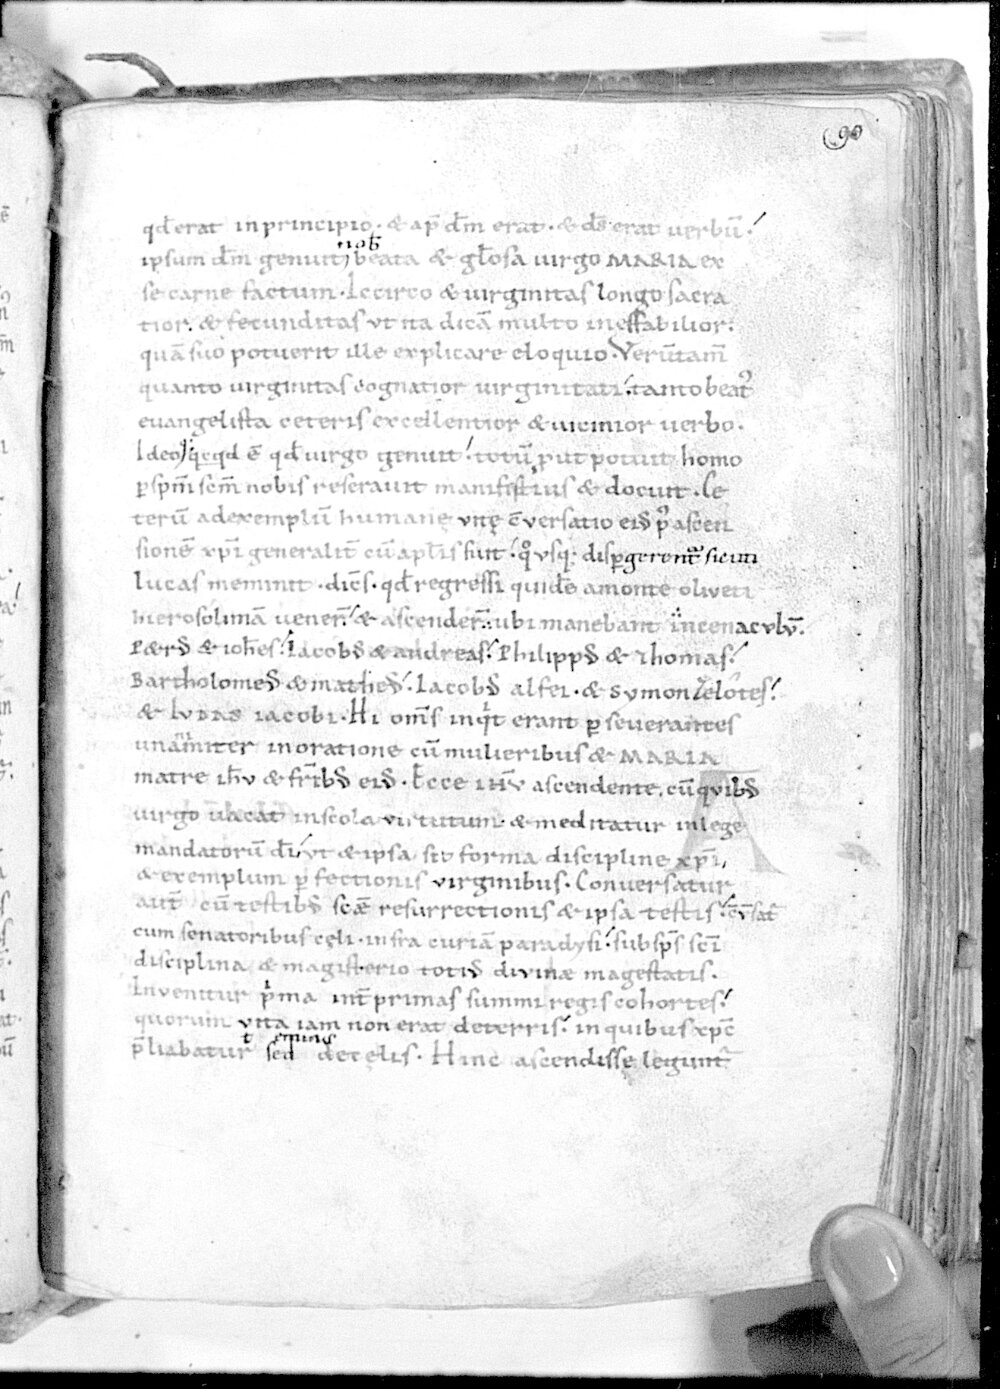 90
qđ erat in principio · & ap̄ dm̄ erat · & ds̄ erat uerbū ·
nob̄
ipsum dm̄ genuit beata & gl̄osa uirgo MARIA ex
se carne factum · Iccirco & uirginitas longo sacra
tior · & fecunditas vt ita dicā multo ineffabilior ·
quā suo potuerit ille explicare eloquio · Verūtam̄
quanto uirginitas cognatior uirginitati · tanto beat᾽
euangelista ceteris excellentior & uicinior uerbo ·
Ideo qđ ē qđ uirgo genuit · totū put potuit homo
p spm̄ scm̄ nobis reserauit manifestius & docuit · Ce
terū ad exemplū humanę vitę c̄versatio eiꝰ p᾽ ascen
sionē xp̄i generalit̄ cū ap̄lis fuit · q°vsq; dispgerent᾽ sicuti
lucas meminit · dicēs · qđ regressi quidē a monte oliveti
hierosolimā uener̄ · & ascender̄ · ubi manebant in cenacvlv̄ ·
P&rꝰ & ioh̄es · Iacobꝰ & andreas · Philippꝰ & Thomas ·
Bartholomeꝰ & matheꝰ · Iacobꝰ alfei · & symon zelotes ·
& IVDAS iacobi · Hi om̄s inq᾽t erant pseverantes
unanimiter in oratione cū mulieribus & MARIA
matre ih̄v & fr̄ibꝰ eiꝰ · Ecce ih̄v ascendente, cū qvibꝰ
virgo in scola virtutum · & meditatur in lege
mandatorū dī · vt & ipsa sit forma discipline xp̄i,
& exemplum pfectionis virginibus · Conversatur
aut̄ cū testibꝰ scæ resurrectionis & ipsa testis · c̄v̄sat᾽
cum senatoribus cęli · infra curiā paradysi · sub sp̄s sc̄i
disciplina & magisterio totiꝰ divinæ magestatis ·
Invenitur p᾽ma int̄ primas summi regis cohortes ·
quorum vita iam non erat de terris · in quibus xp̄c
eminus
p̄liabatur sed de cęlis · Hinc ascendisse legunt᾽